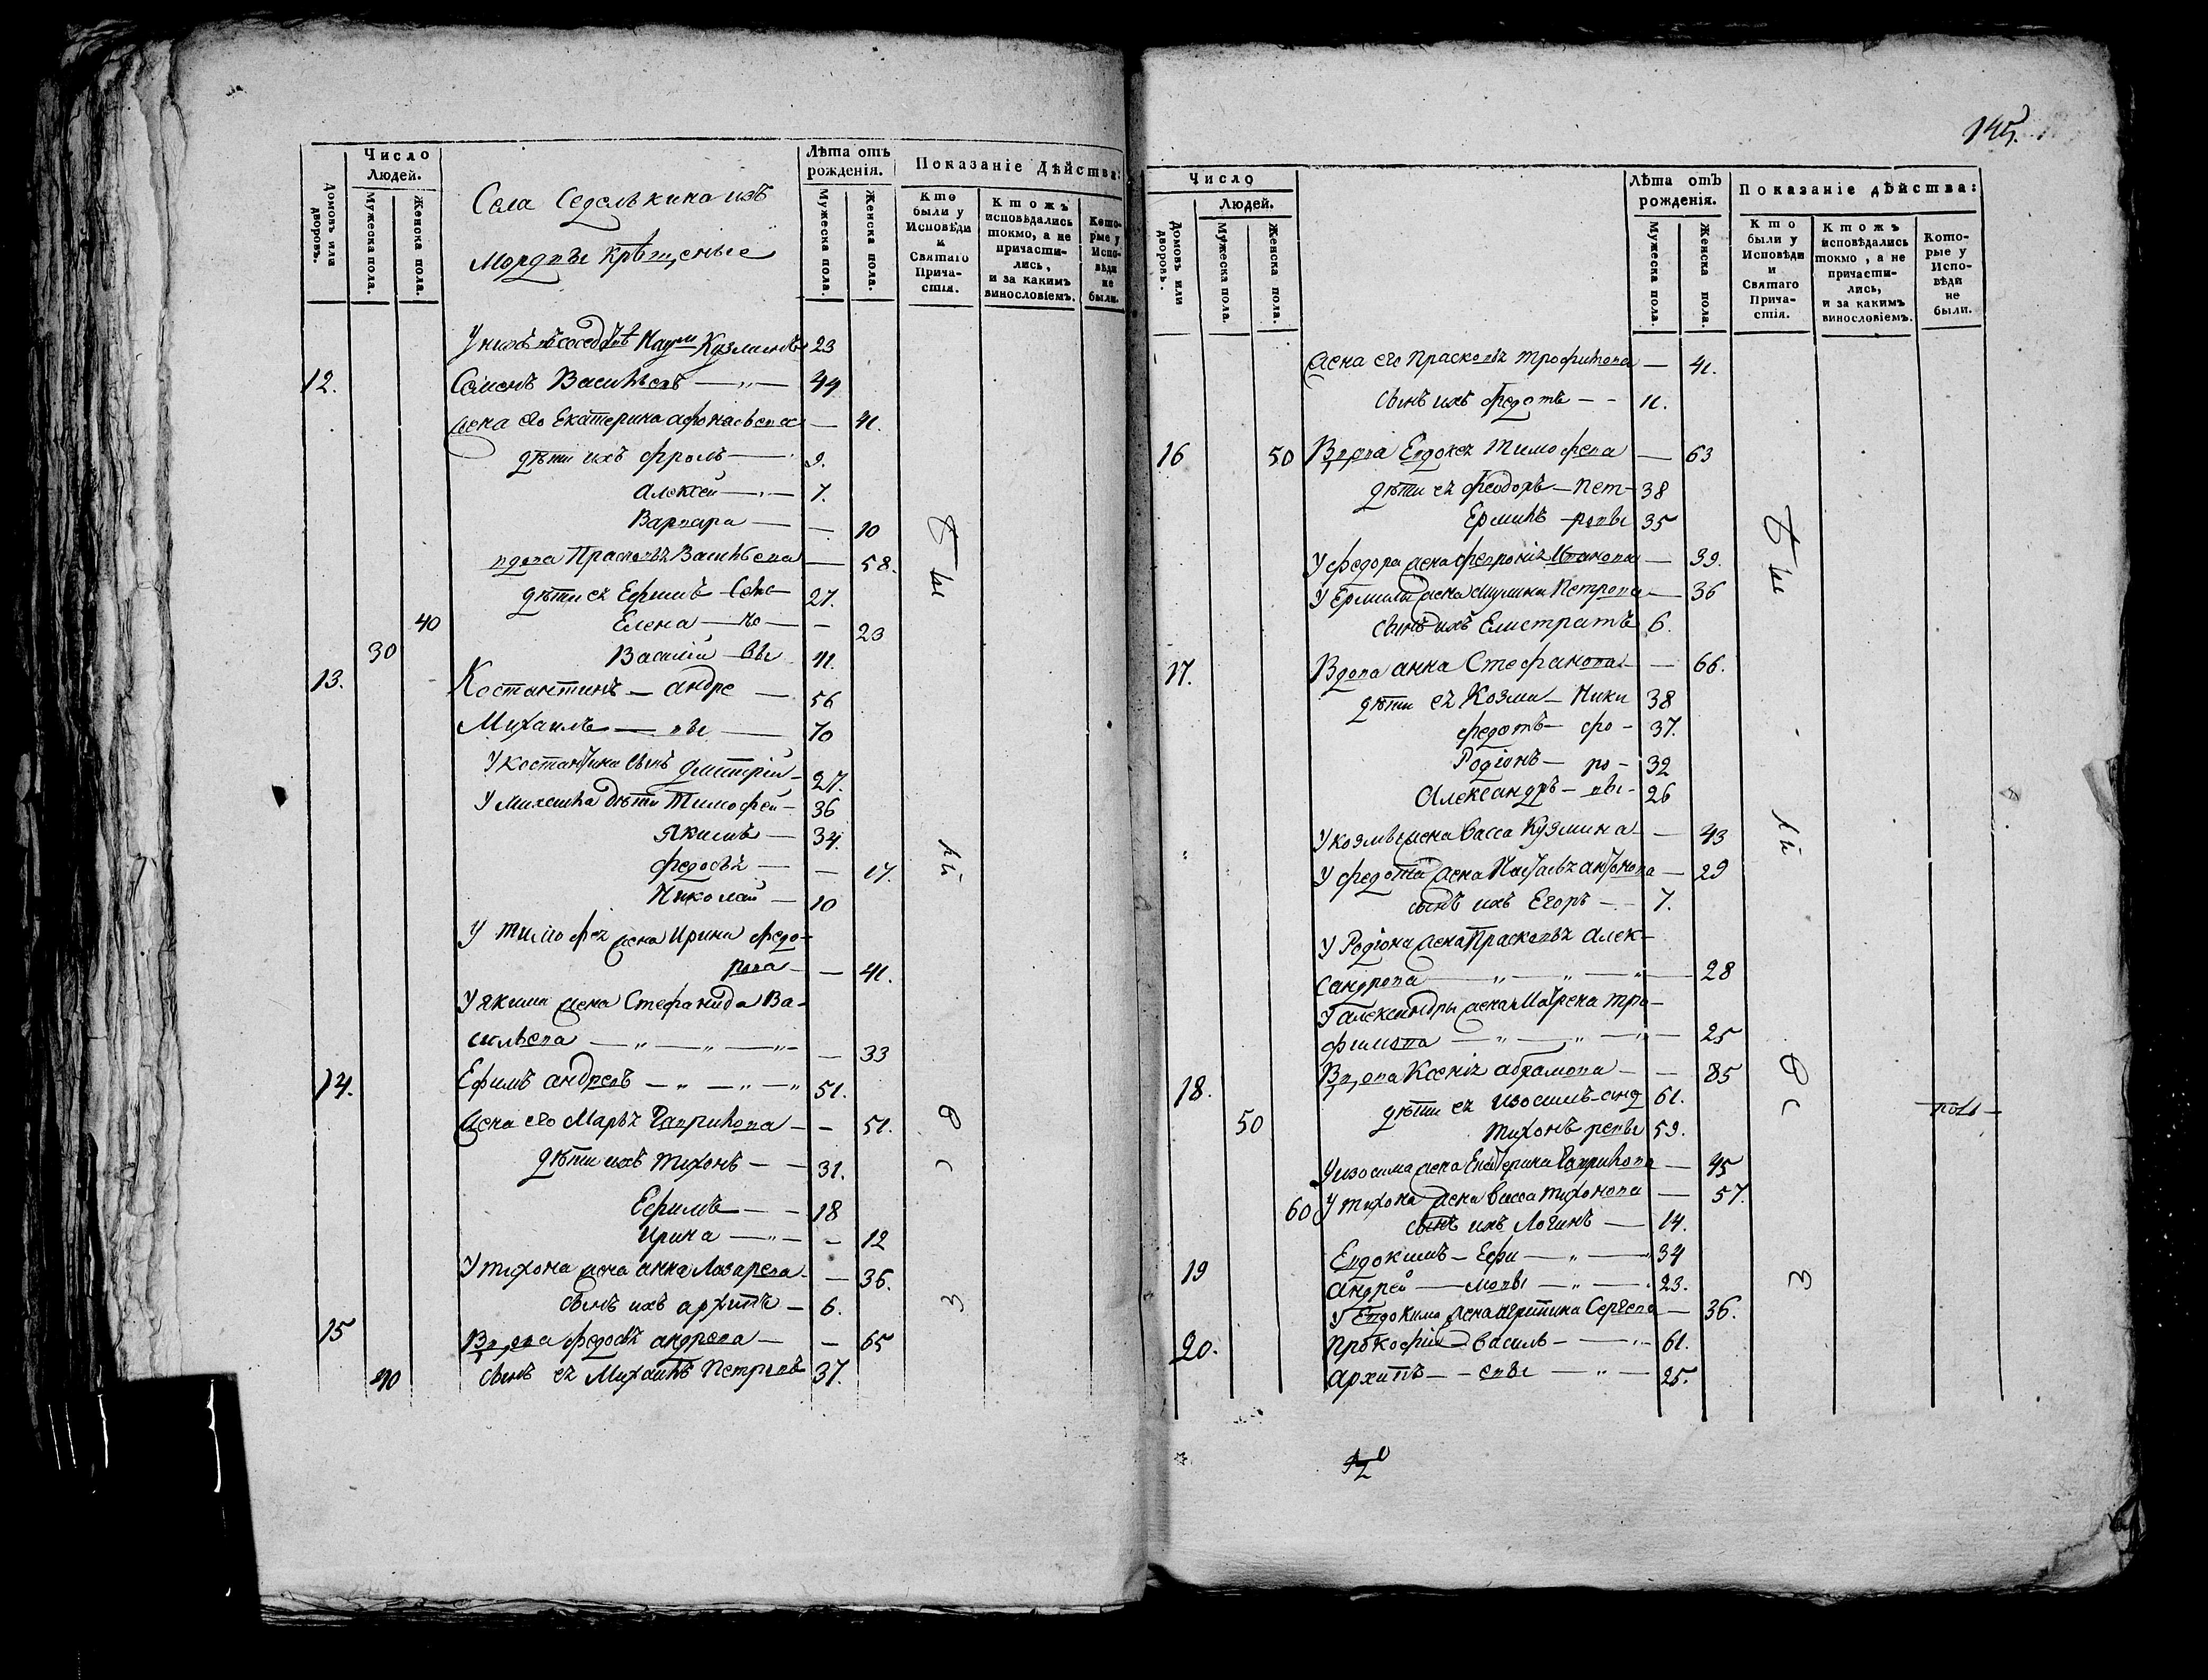 Число Людей.
Домовъ или дворовъ.
Мужеска пола.
Женска пола.
Села Седелькина изъ
Мордвы крѣщеные
Лѣта отъ рожденія.
Мужеска пола.
Женска пола.
Показаніе Дѣйства:
Кто были у Исповѣди и Святаго Прича-стія.
Ктожъ исповѣдались токмо, а не причасти-лись, и за какимъ винословіемъ.
Кото-рые у Испо-вѣди не были.
У нихъ въ соседствѣ Наумъ Кузминъ 23
12. Семенъ Васильевъ 44
жена его Екатерина афонасьева — 41.
дѣти ихъ Фролъ 9.
Алексей 7.
Варвара — 10
вдова Прасковья Васильева — 58.
дѣти ея Ефимъ 27.
40 Елена — 23
30 Василій 11.
13. Костантинъ — андре — 56
Михаилъ — вы — 70
У костантина сынъ дмитрій 27.
У михаила дѣти Тимофей 36
Якимъ — 34.
Федосья — 17.
Николай — 10
У тимофея жена Ирина Федо-
рова — 41.
У якима жена Стефанида Ва-
сильева — 33
14. Ефимъ андреевъ 51.
жена его Марья Гаврилова — 51.
дѣти ихъ тихонъ — 31.
Ефимъ — 18
Ирина — 12
У тихона жена анна Лазарева — 36.
сынъ ихъ архипъ — 6.
15 Вдова федосья андреева — 65
40 сынъ ея Михаилъ Петровъ 37.
145.
Число Людей.
Домовъ или дворовъ.
Мужеска пола.
Женска пола.
Лѣта отъ рожденія.
Мужеска пола.
Женска пола.
Показаніе дѣйства:
Кто были у Исповѣди и Святаго Прича-стія.
Ктожъ исповѣдались токмо, а не причасти-лись, и за какимъ винословіемъ.
Кото-рые у Испо-вѣди не были.
жена его Прасковья трофимова — 41.
сынъ ихъ федотъ — 11.
16 50 Вдова Евдокея Тимофева — 63
дѣти ея феодоръ — Пет- 38
Ермилъ — ровы 35
У федора жена февронія Иванова — 39.
У Ермила жена Петрова — 36
сынъ ихъ Елистратъ 6.
17. Вдова анна Стефанова — 66.
дѣти ея Козма — Ники 38
федотъ — фо - 37.
Родіонъ — ро - 32
Александръ — вы - 26
У козмы жена васса Кузмина — 43
У федота жена Настасья антонова — 29
сынъ ихъ Егоръ — 7.
У Родіона жена Прасковья алек-
сандрова — 28
У александры жена Матрена тро-
фимова — 25
18. Вдова Ксенія абрамова — 85
дѣти ея изосимъ — анд 61.
50 тихонъ реевы 59.
У изосима жена Екатерина Гаврилова — 45
60 У тихона жена васса тихонова — 57.
сынъ ихъ Логинъ — 14.
19 Евдокимъ — Ефи — 34
андрей — мовы — 23.
У Евдокима жена Сергева — 36.
20. прокофій — василь — 61.
архипъ — евы — 25.